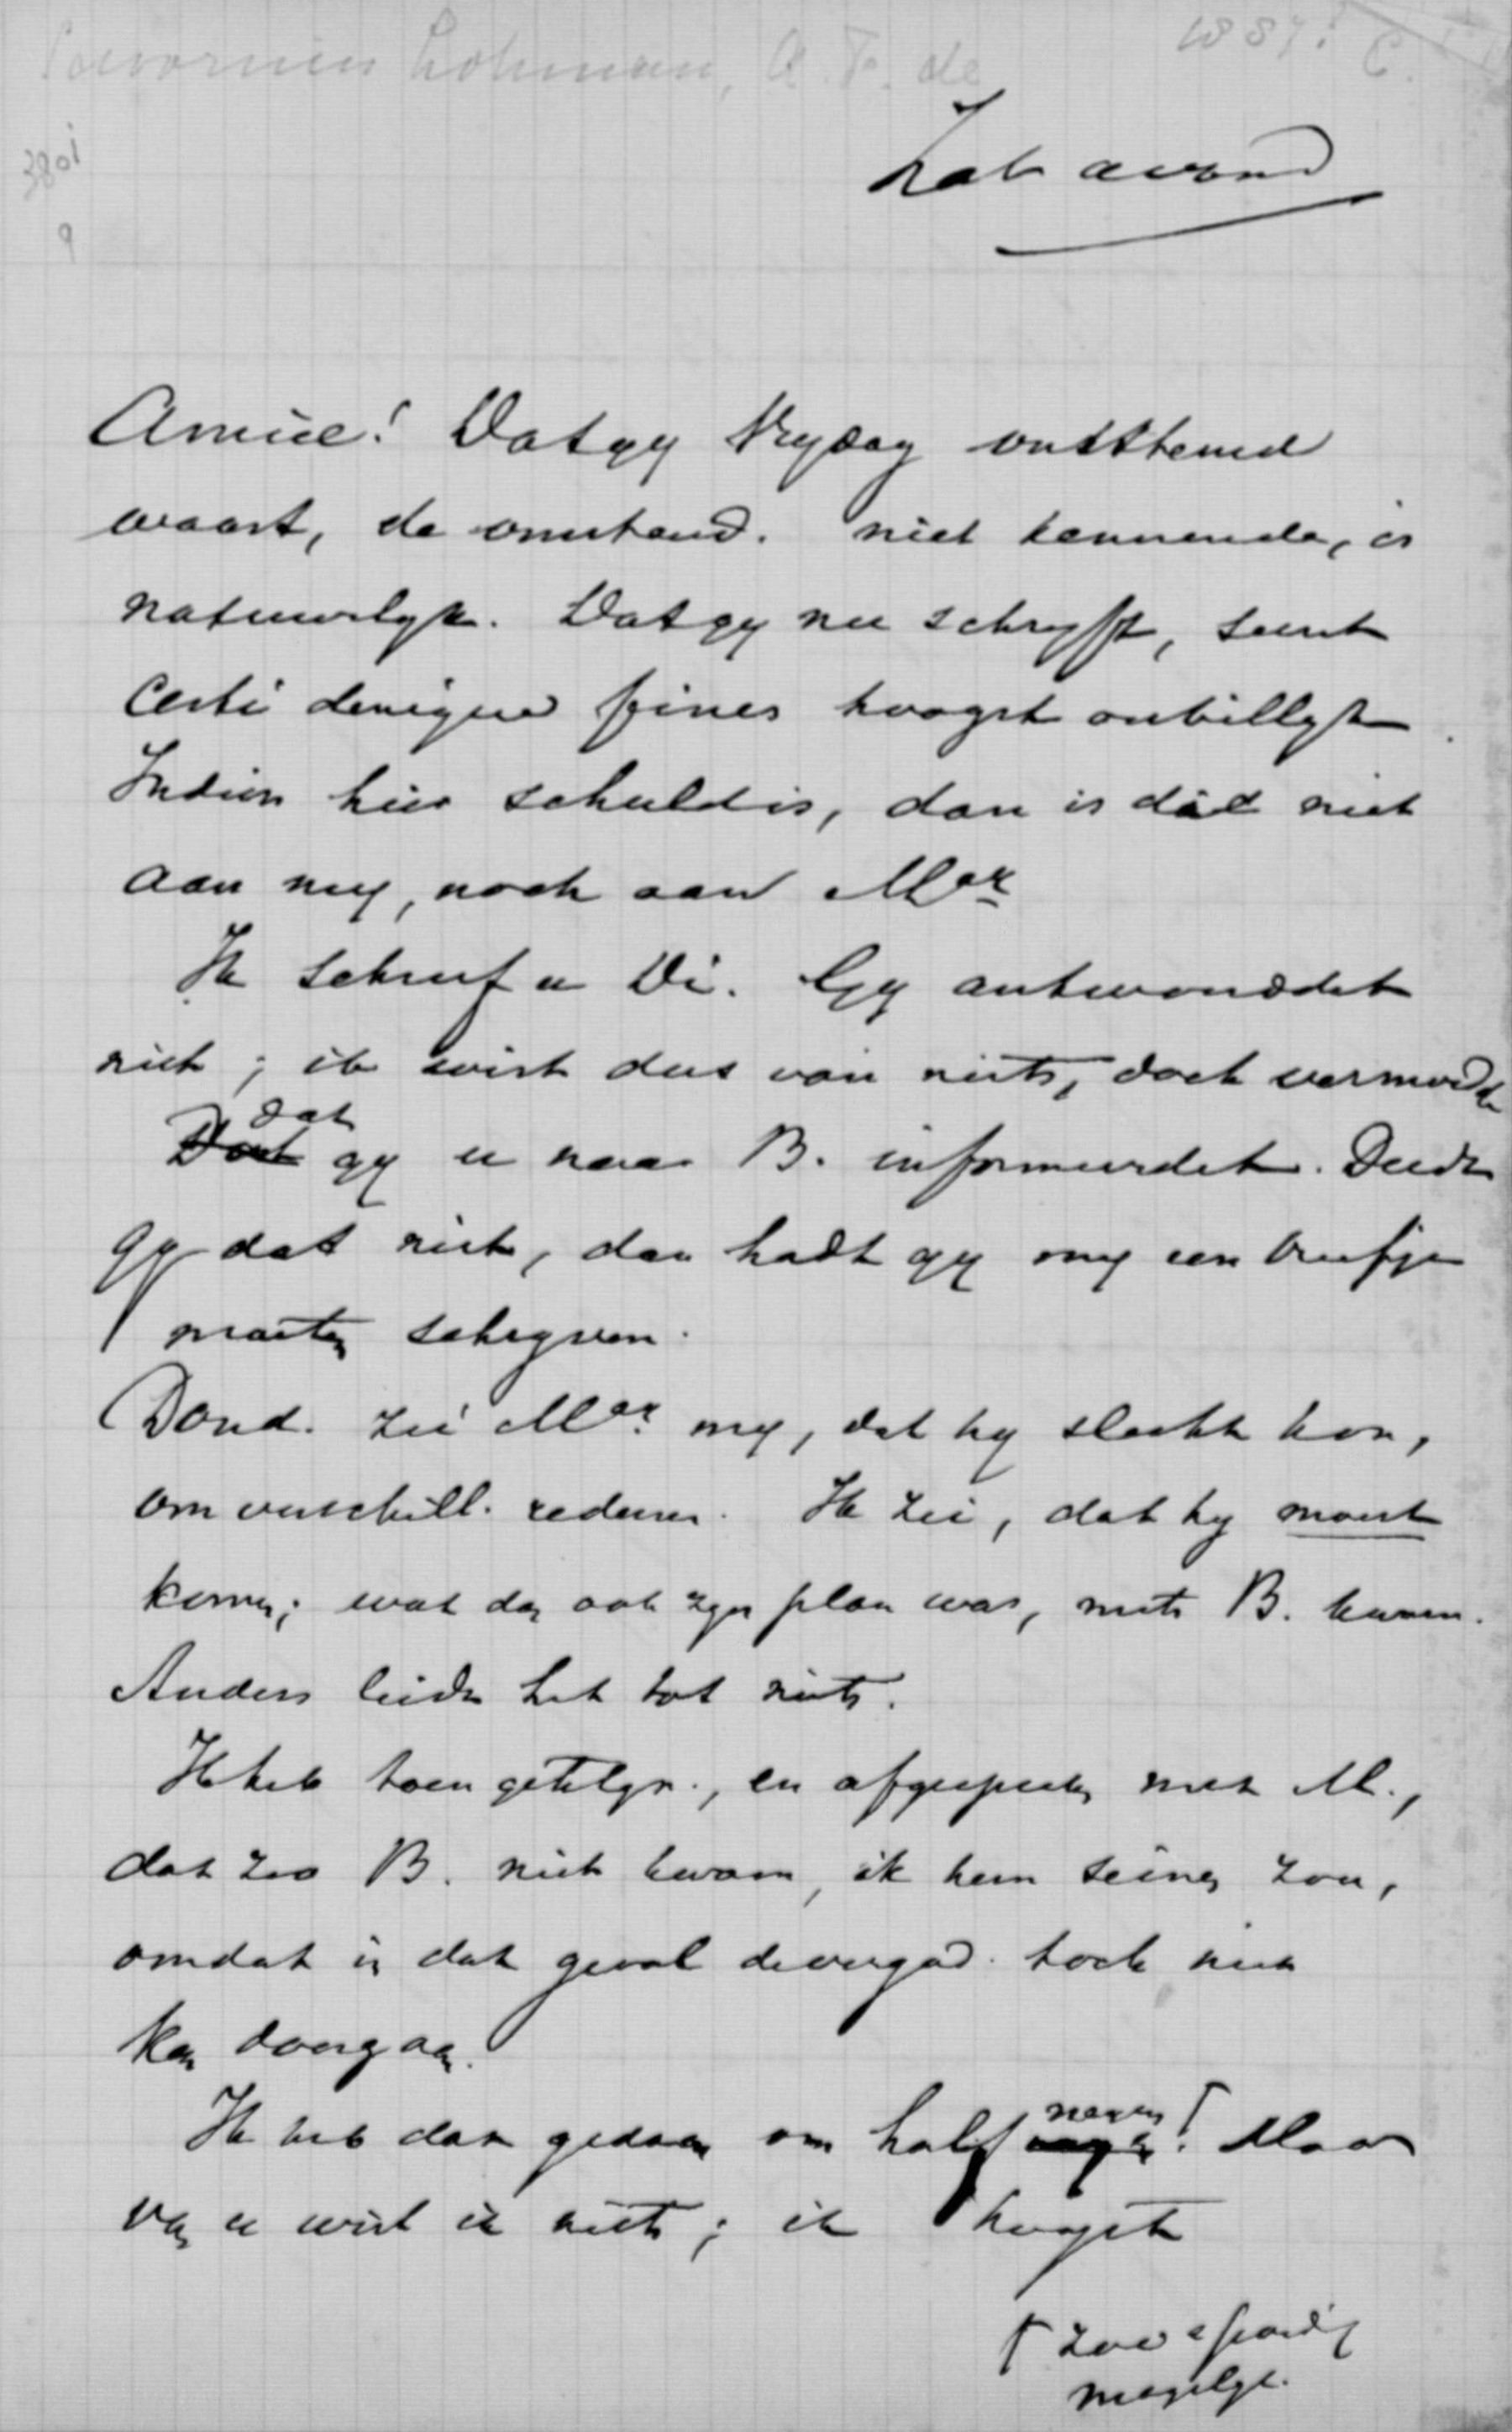 Savornin Lohman, A. F. de
1887?
C.
3801
9
Zat avond
Amice! Dat gy Vrydag ontstemd
waart, de omstand. niet kennende, is
natuurlyk. Dat gy nu schryft, sunt
certi denique fines hoogst onbillyk.
Indien hier schuld is, dan is dàt niet
aan my, noch aan Mær
Ik schreef u Di. Gy antwoorddet
niet; ik wist dus van niets, doch vermoedde
dat
Dat gy u naar B. informeerdet. Deedt
gy dat niet, dan hadt gy my een briefje
moeten schryven.
Dond. zei Mær my, dat hy slecht kon,
om verschill. redenen. Ik zei, dat hy moest
komen; wat dan ook zyn plan was, mits B. kwam.
Anders leidde het tot niets.
Ik heb toen getelgr., en afgesproken met M.,
dat zoo B. niet kwam, ik hem seinen zou,
omdat in dat geval de vergad. toch niet
kon doorgaan.
Ik heb dat gedaan om half negen! Maar
van u wist ik niets; ik hoogst
zoo spoedig
mogelyk.